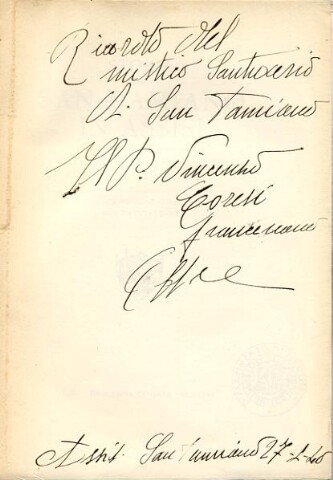 Ricordo del
mistico Santuario
di San Damiano
P. Vincenzo
Coresi
francescano
Assisi. San Damiano 27-